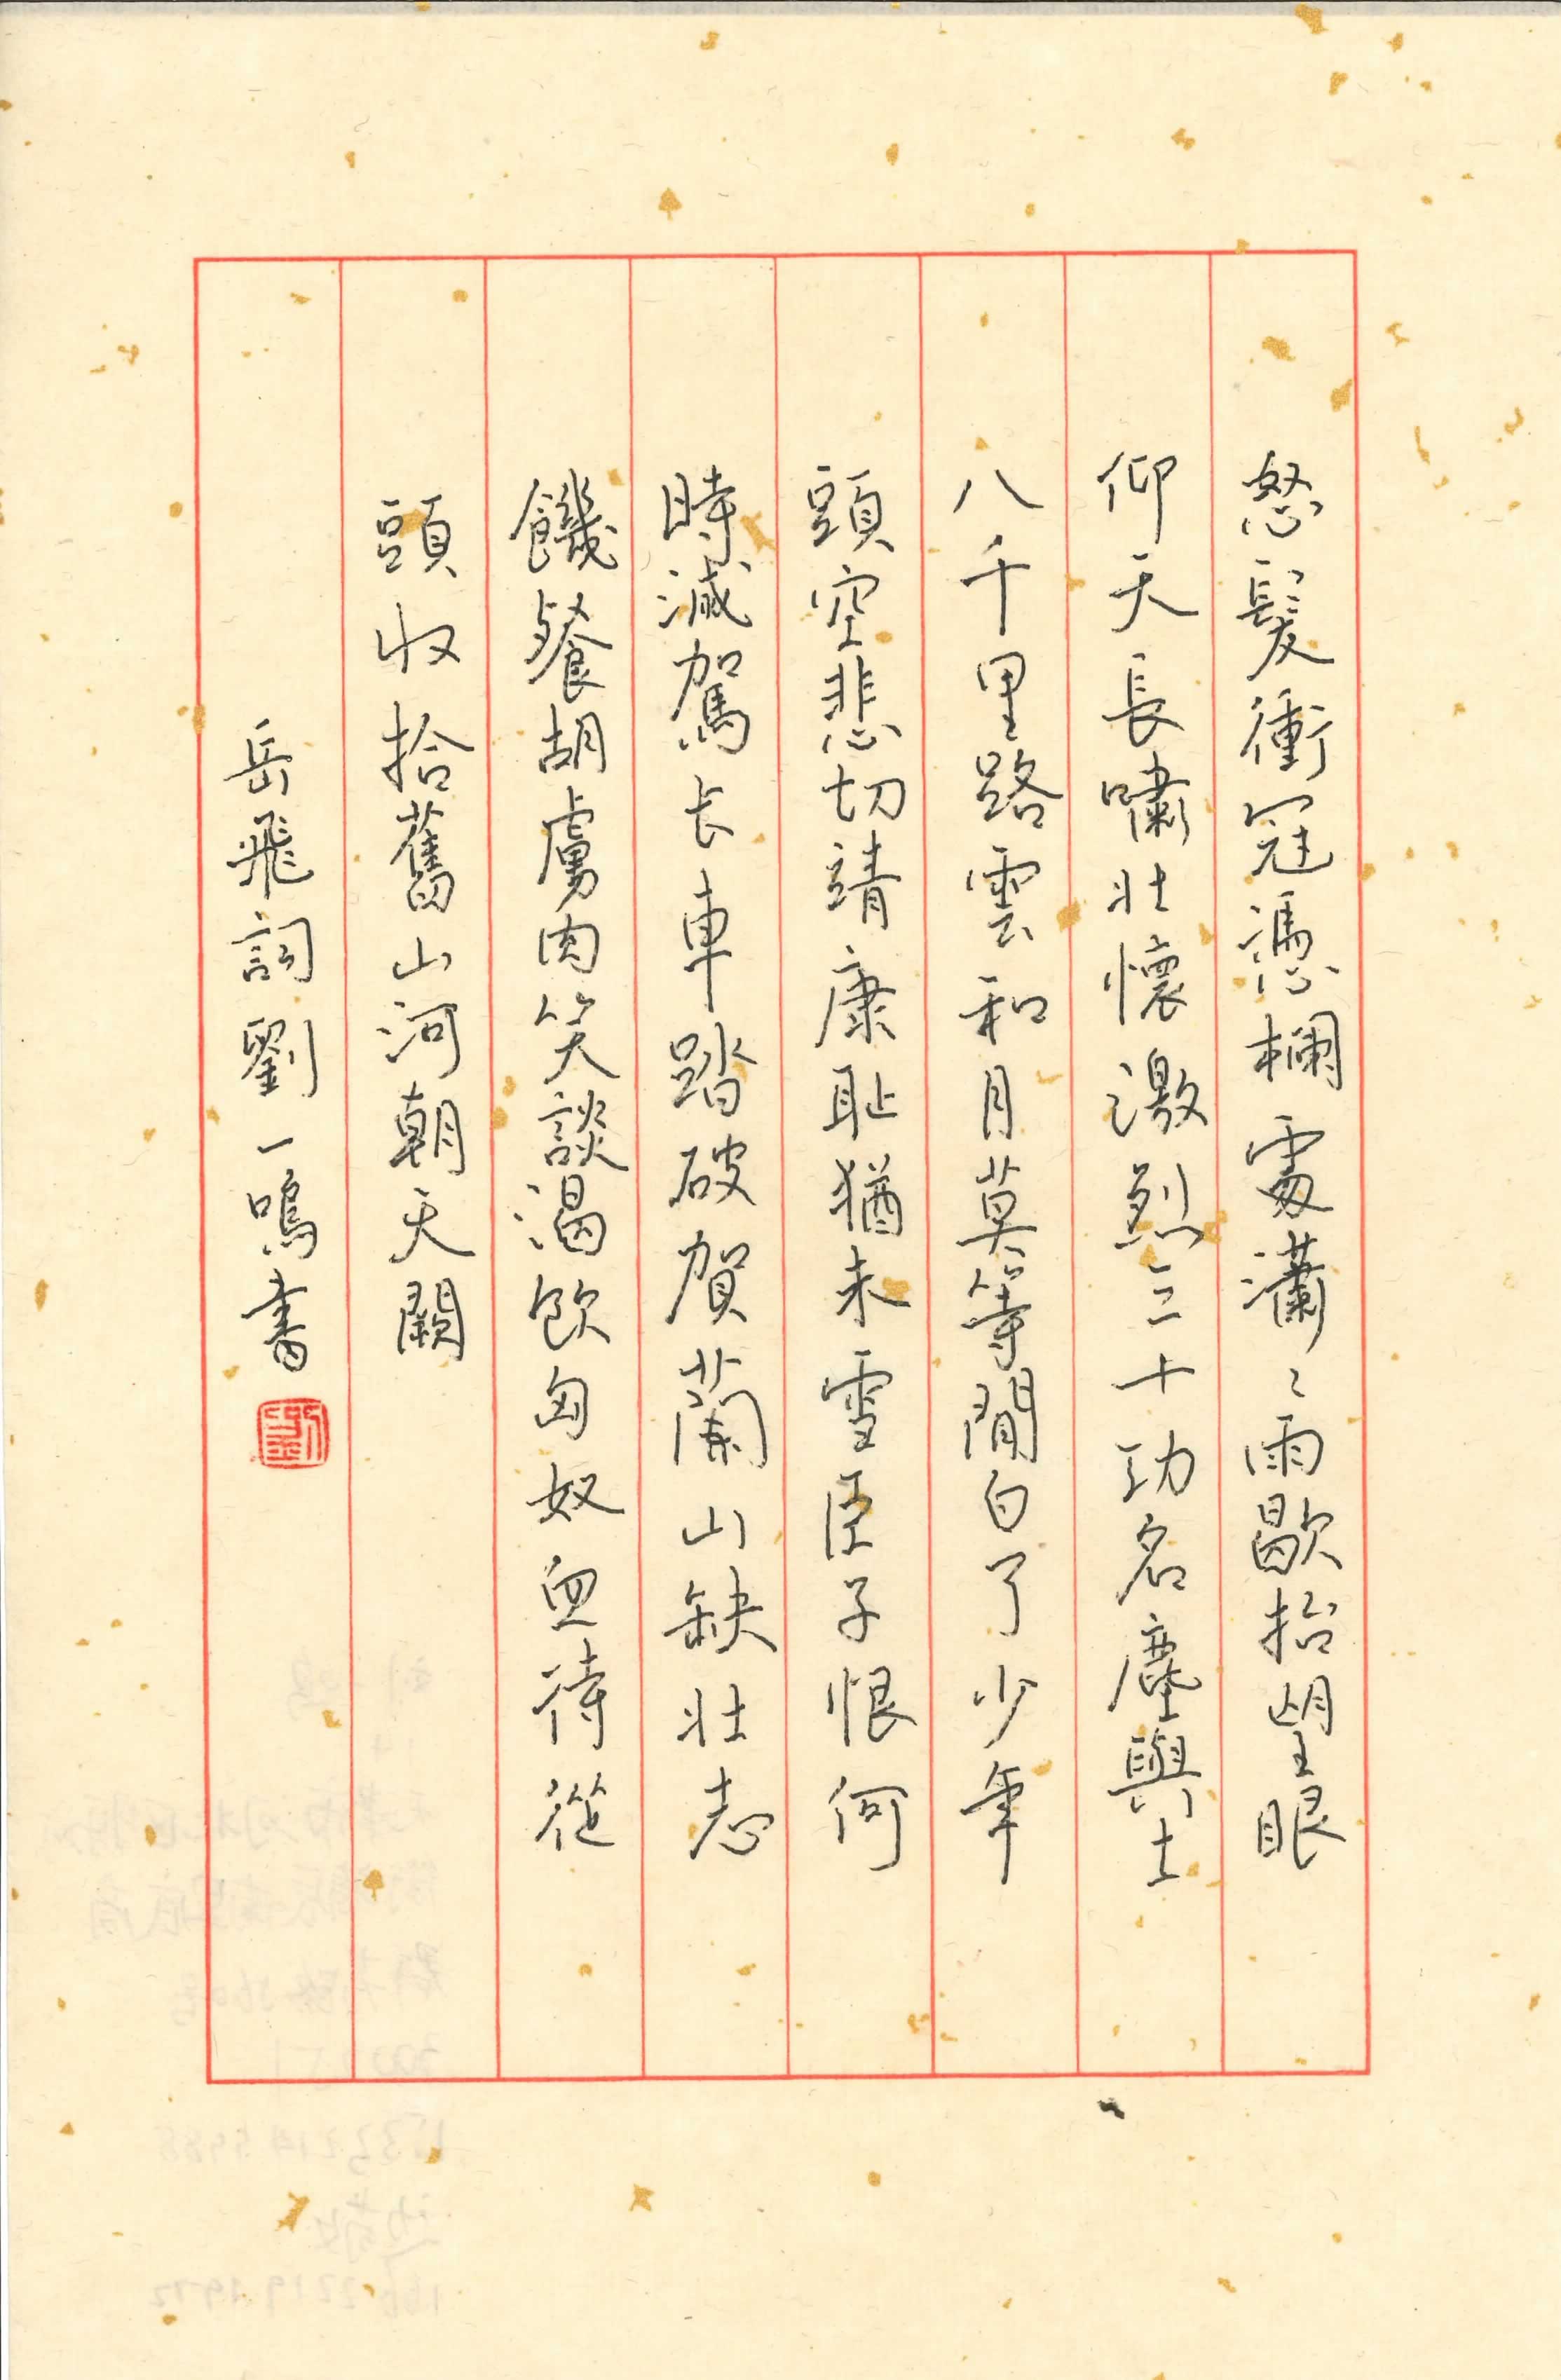 怒髮衝冠憑欄處瀟〻雨歇抬望眼
仰天長嘯壯懷激烈三十功名塵與土
八千里路雲和月莫等閒白了少年
頭空悲切靖康恥猶未雪臣子恨何
時滅駕长車踏破賀蘭山缺壯志
饑餐胡虜肉笑談渴飲匈奴血待從
頭收拾舊山河朝天闕
岳飛詞劉一鳴書
劉